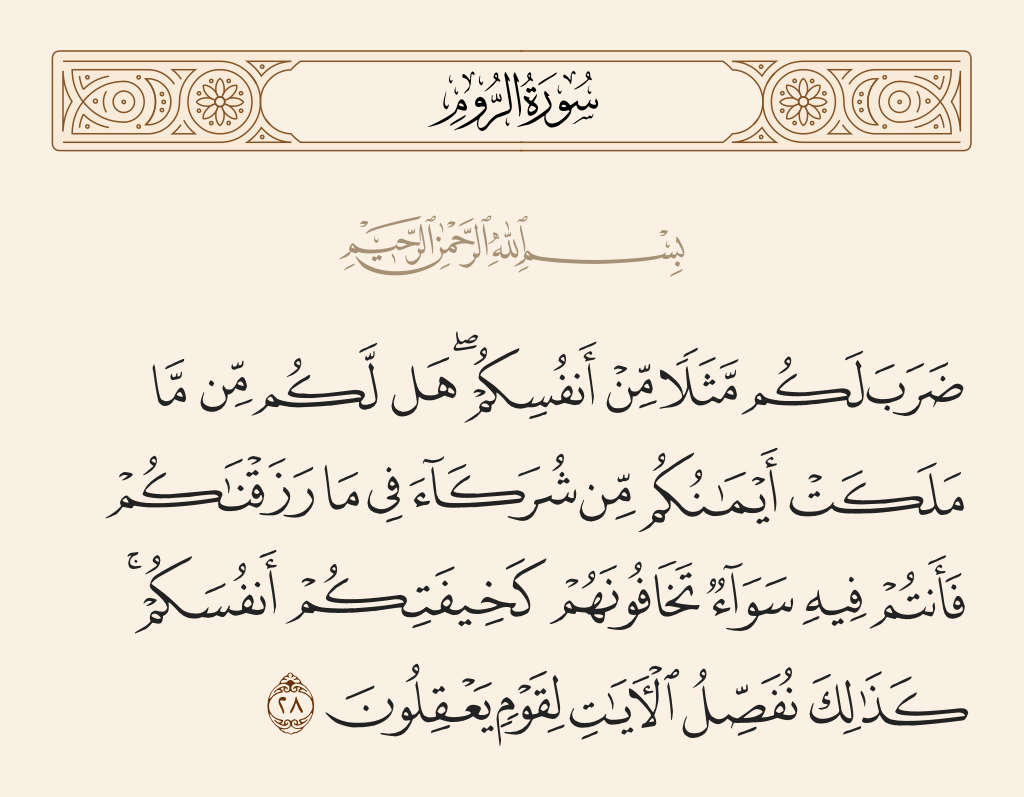 سُورَةُ الرُّومِ
بِسْمِ ٱللَّهِ ٱلرَّحْمَٰنِ ٱلرَّحِيمِ
ضَرَبَ لَكُم مَّثَلًا مِّنْ أَنفُسِكُمْ ۖ هَل لَّكُم مِّن مَّا
مَلَكَتْ أَيْمَٰنُكُم مِّن شُرَكَآءَ فِى مَا رَزَقْنَٰكُمْ
فَأَنتُمْ فِيهِ سَوَآءٌ تَخَافُونَهُمْ كَخِيفَتِكُمْ أَنفُسَكُمْ ۚ
كَذَٰلِكَ نُفَصِّلُ ٱلْـَٔايَٰتِ لِقَوْمٍ يَعْقِلُونَ ٢٨